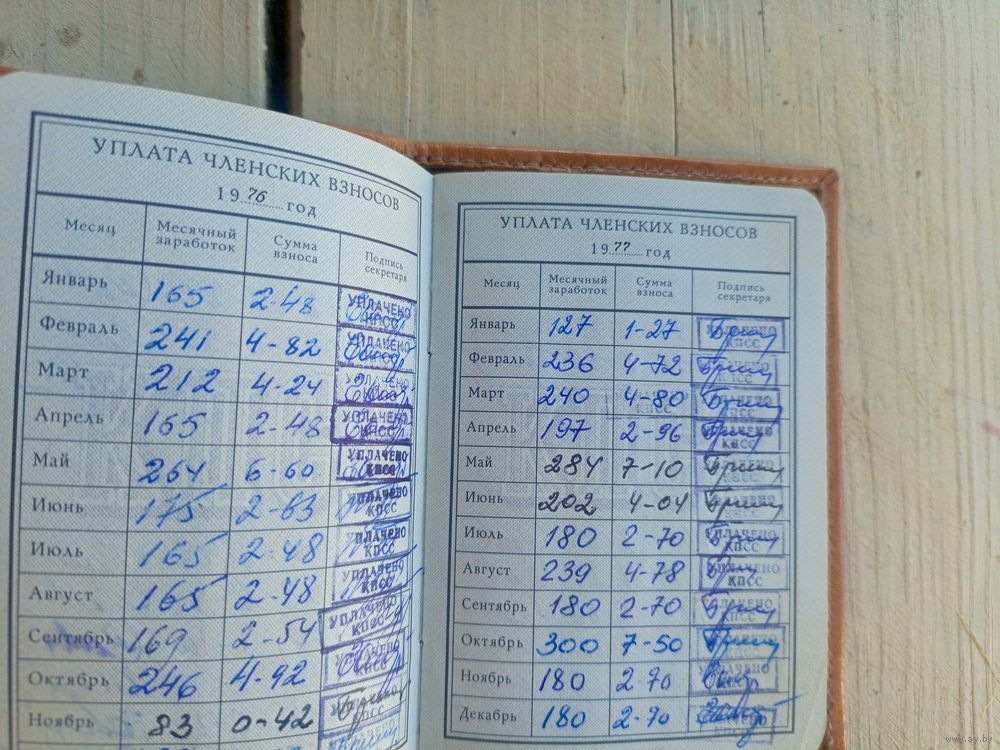 УПЛАТА ЧЛЕНСКИХ ВЗНОСОВ
1976 год
Месяц Месячный заработок Сумма взноса Подпись секретаря
Январь 165 2-48 УПЛАЧЕНО КПСС
Февраль 241 4-82 УПЛАЧЕНО КПСС
Март 212 4-24 УПЛАЧЕНО КПСС
Апрель 165 2-48 УПЛАЧЕНО КПСС
Май 264 6-60 УПЛАЧЕНО КПСС
Июнь 175 2-63 УПЛАЧЕНО КПСС
Июль 165 2-48 УПЛАЧЕНО КПСС
Август 165 2-48 УПЛАЧЕНО КПСС
Сентябрь 169 2-54 УПЛАЧЕНО КПСС
Октябрь 246 4-92 УПЛАЧЕНО КПСС
Ноябрь 83 0-42 КПСС
УПЛАТА ЧЛЕНСКИХ ВЗНОСОВ
1977 год
Месяц Месячный заработок Сумма взноса Подпись секретаря
Январь 127 1-27 УПЛАЧЕНО КПСС
Февраль 236 4-72 КПСС
Март 240 4-80 КПСС
Апрель 197 2-96 УПЛАЧЕНО КПСС
Май 284 7-10
Июнь 202 4-04 УПЛАЧЕНО
Июль 180 2-70 УПЛАЧЕНО КПСС
Август 239 4-78 УПЛАЧЕНО КПСС
Сентябрь 180 2-70 УПЛАЧЕНО КПСС
Октябрь 300 7-50 УПЛАЧЕНО КПСС
Ноябрь 180 2-70 УПЛАЧЕНО КПСС
Декабрь 180 2-70 КПСС
www.ay.by